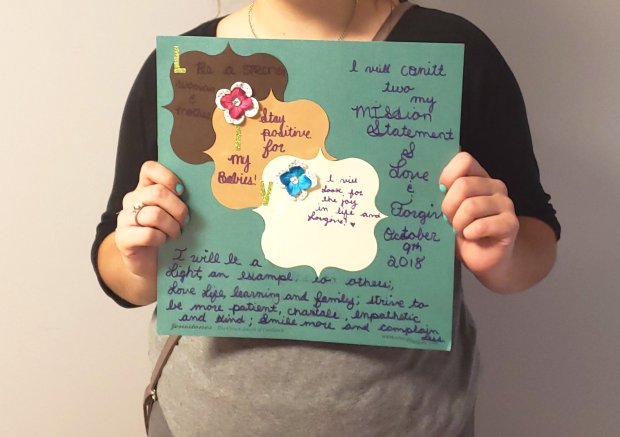 L
Be a strong
woman
&
mother
I
Stay
positive
for
my
Babies!
V
I will
look for
the joy
in life and
forgive! ♥
I will comitt
two
my
Mission
Statement
&
Love
&
Forgiv
October
9th
2018
I will be a
light, an example, to others;
Love Life, learning and family; strive to
be more patient, charitale, empathetic
and kind; smile more and complain
less.